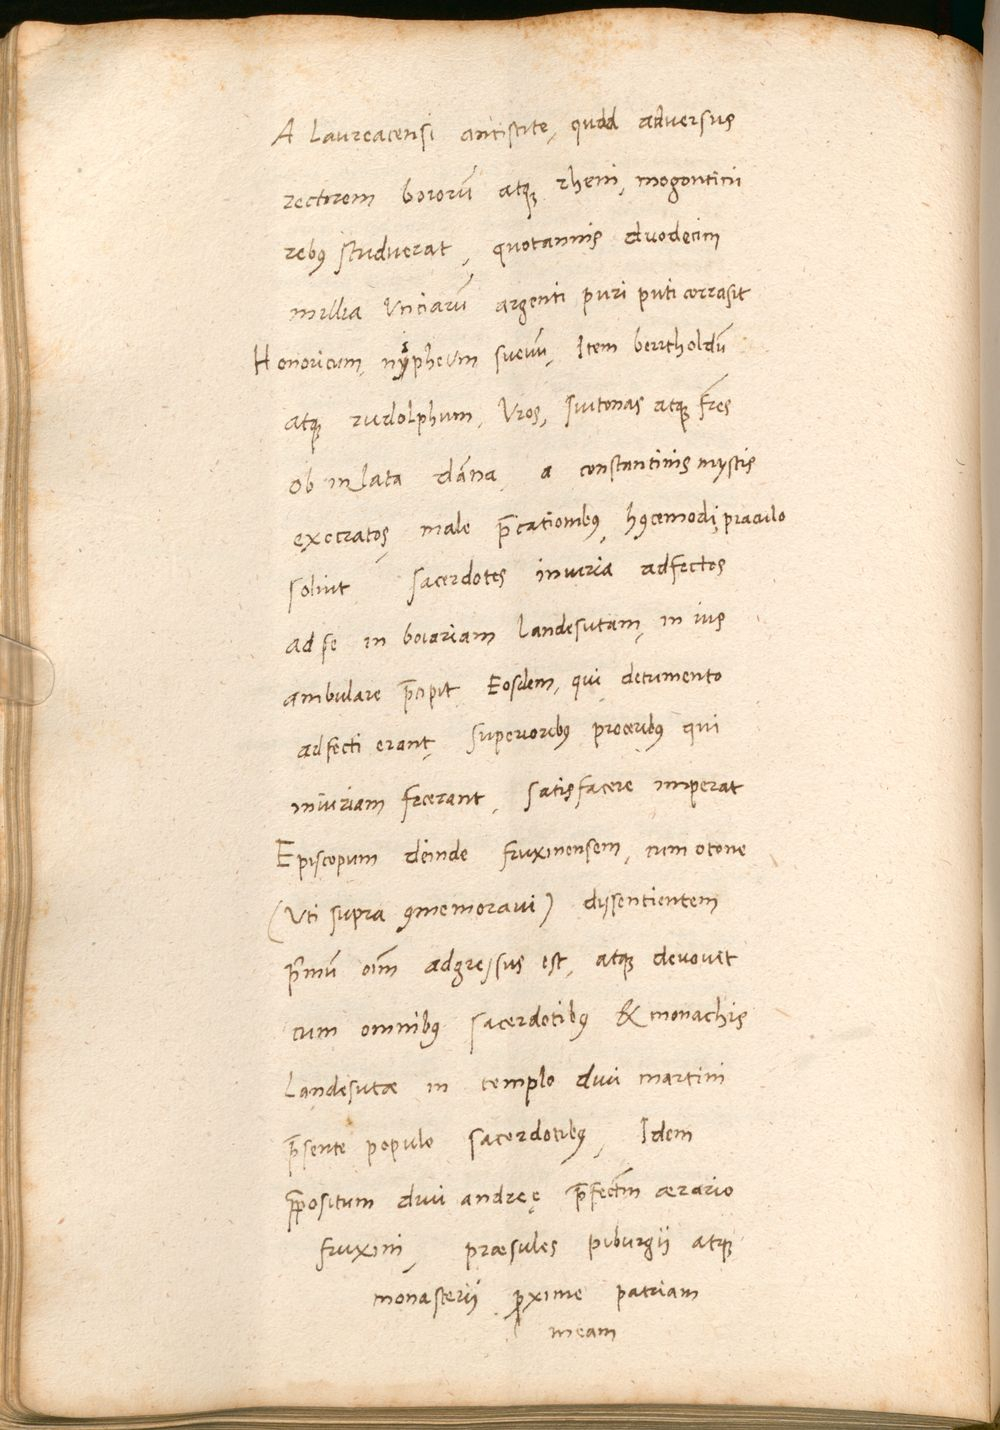 A laureacensi antistite, quod adversus
rectorem boiorū atq; rheni, mogontini
rebꝰ studuerat, quotannis duodecim
millia Unciarū argenti puri puti corrasit
Honoricum, nympheum sueuū, Item berrtholdū
atq; rudolphum, Uros, suitonas atq; fr̄es
ob inlata dāna, a constantinis mystis
execratos, male p̄cationibꝰ, hꝰcemodi, piaculo
soluit sacerdotes iniuria adfectos
ad se in boiariam landesutam, in ius
ambulare p̄cipit Eosdem, qui detrimento
adfecti erant, superioribꝰ proceribꝰ qui
iniuriam fecerant, satisfacere imperat
Episcopum deinde fruxinensem, cum otone
(Uti supra ꝯmemoraui) dissentientem
p̄mū oīm adgressus est, atq; devovet
cum omnibꝰ sacerdotibꝰ & monachis
Landesutæ in templo diui martini
p̄sente populo sacerdotibꝰ, Idem
p̄positum diui andreę p̄fectū ærario
fruxini, præsules piburgii atq;
monasterii ꝓxime patriam
meam